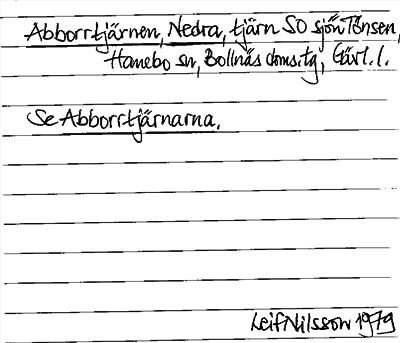 Abborrtjärnen, Nedra, tjärn SO sjön Tönsen,
Hanebo sn, Bollnäs doms.tg, Gävl.l.
Se Abborrtjärnarna.
Leif Nilsson 1979